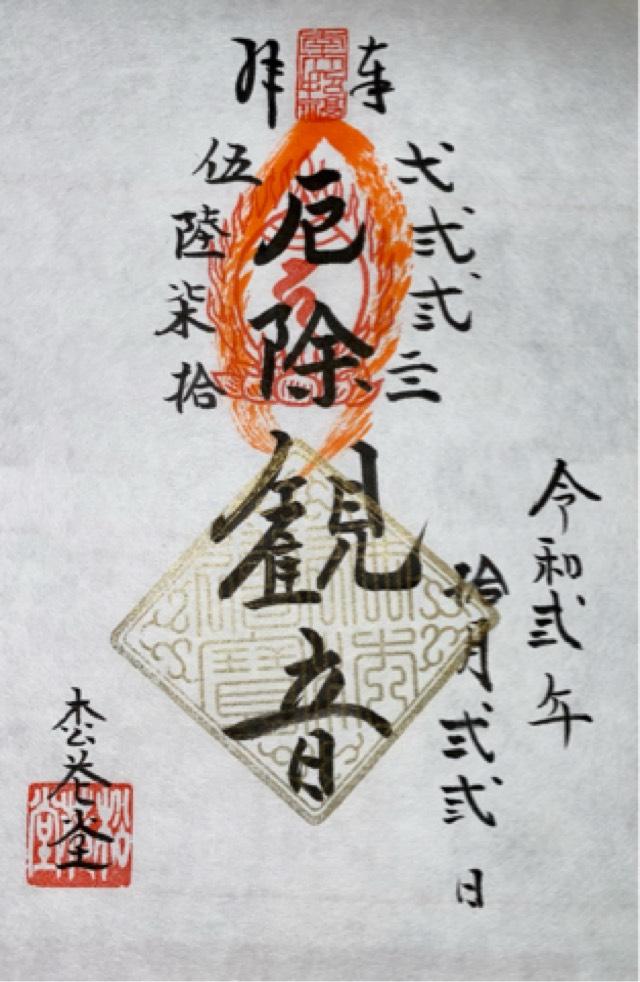 奉拝
弌弐弐三
厄除観音
伍陸柒拾
令和弐年
拾月弐弐日
松谷堂